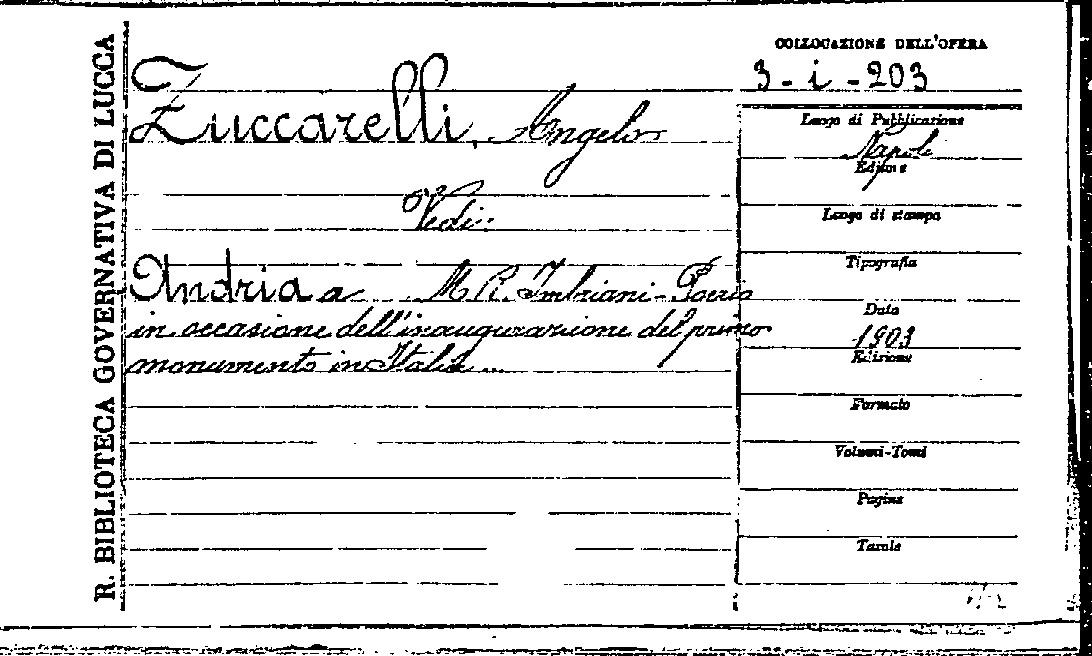 R. BIBLIOTECA GOVERNATIVA DI LUCCA
Zuccarelli, Angelo
Vedi:
Andria a M. R. Imbriani-Poerio
in occasione dell'inaugurazione del primo
monumento in Italia...
COLLOCAZIONE DELL'OPERA
3-i-203
Luogo di Pubblicazione
Napoli
Editore
Luogo di stampa
Tipografia
Data
1903
Edizione
Formato
Volumi-Tomi
Pagine
Tavole